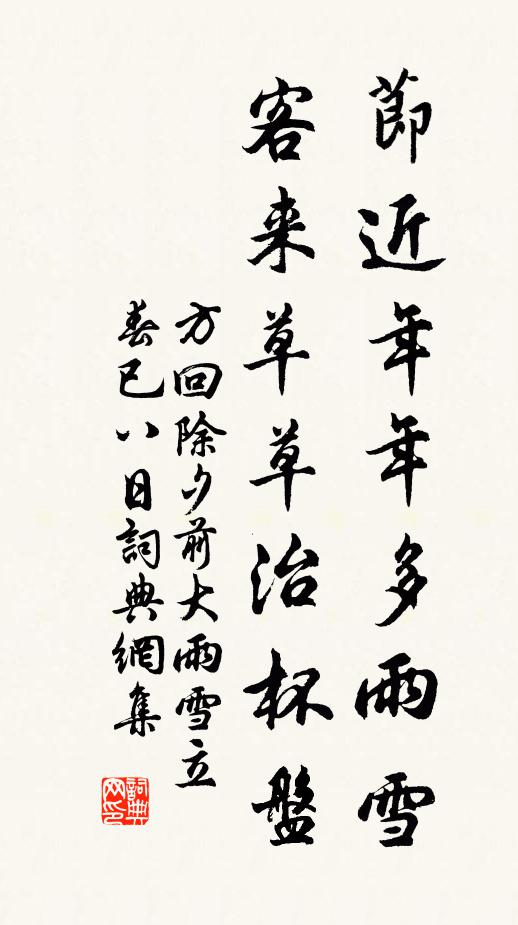 節近年年多雨雪
客来草草治杯盤
方回除夕前大雨雪立
春已八日詞典網集
詞典网印